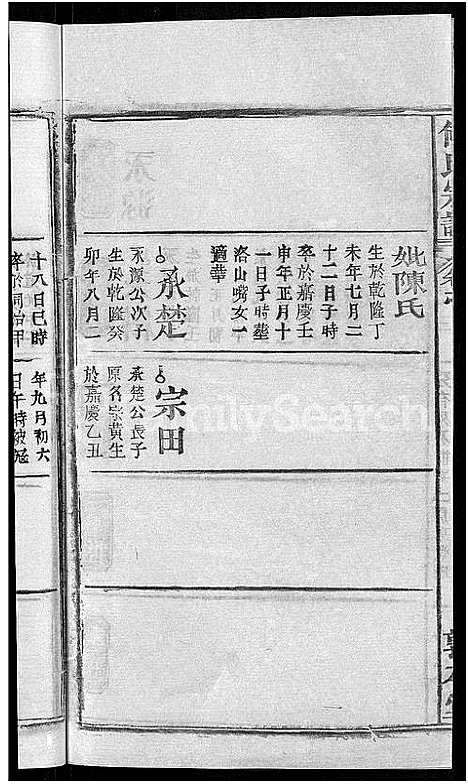 妣陳氏
生於乾隆丁
未年七月二
十二日子時
卒於嘉慶壬
申年正月十
一日子時塟
洛山嘴女一
適華
承楚
永源公次子
生於乾隆癸
卯年八月二
宗田
承楚公長子
原名宗黃生
於嘉慶乙丑
十八日巳時
卒於同治甲
年九月初六
日午時被冦
FamilySearch